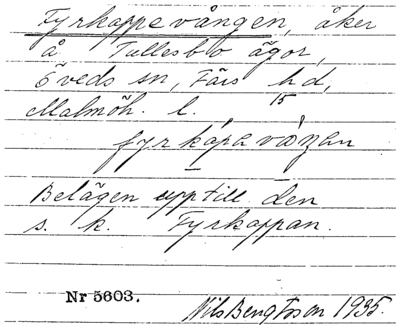 Fyrkappevången, åker
å Tullesbo ägor,
Öveds sn, Färs hd,
Malmöh. l. 15
fyrkápa vàŋan
Belägen upp till den
s. k. Fyrkappan.
Nr 5603. Nils Bengtsson 1935.